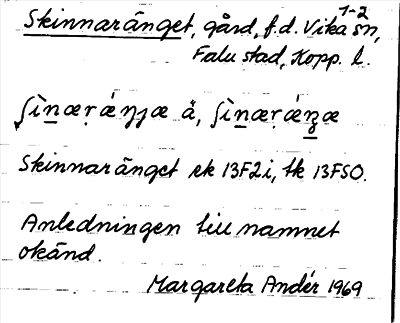 1-2
Skinnaränget, gård, f.d. Vika sn,
Falu stad, Kopp. l.
ʃìnærǽŋɟæ ä, ʃìnærǽnʒæ
Skinnaränget ek 13F2i, tk 13FSO.
Anledningen till namnet
okänd.
Margareta Andér 1969